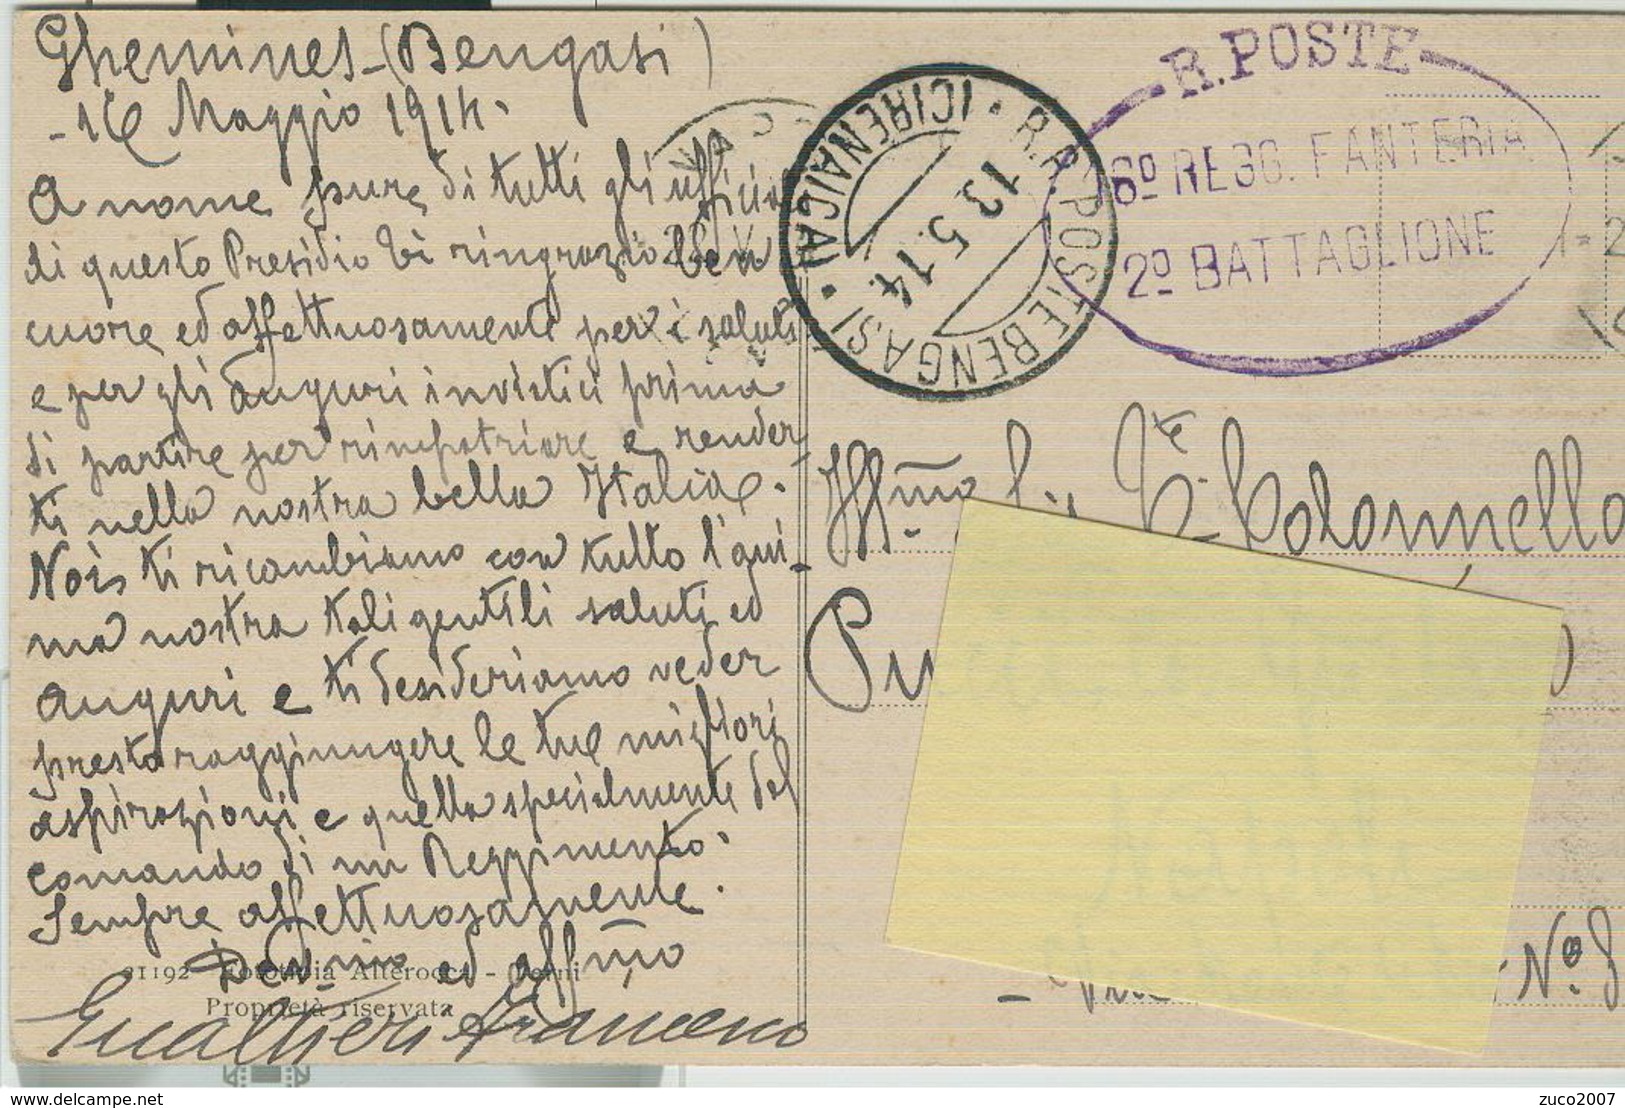 Ghemines - (Bengasi)
- 16 Maggio 1914.
A nome pure di tutti gli ufficiali
di questo Presidio ti ringrazio ben
cuore ed affettuosamente per i saluti
e per gli auguri inviatici prima
di partire per rimpatriare e render
ti nella nostra bella Italia.
Noi ti ricambiamo con tutto l'ani-
ma nostra tali gentili saluti ed
auguri e ti desideriamo veder
presto raggiungere le tue migliori
aspirazioni e quella specialmente del
comando di un Reggimento.
Sempre affettuosamente.
ed affmo
21192 Fototipia Alterocca - Terni
Proprietà riservata
Gualtieri Francesco
R. POSTE
6º REGG. FANTERIA
2º BATTAGLIONE
R.R. POSTE BENGASI
(CIRENAICA)
13.5.14
Illmo Sig. Te Colonnello
Pu
- Nº 8
delcampe.net
zuco2007